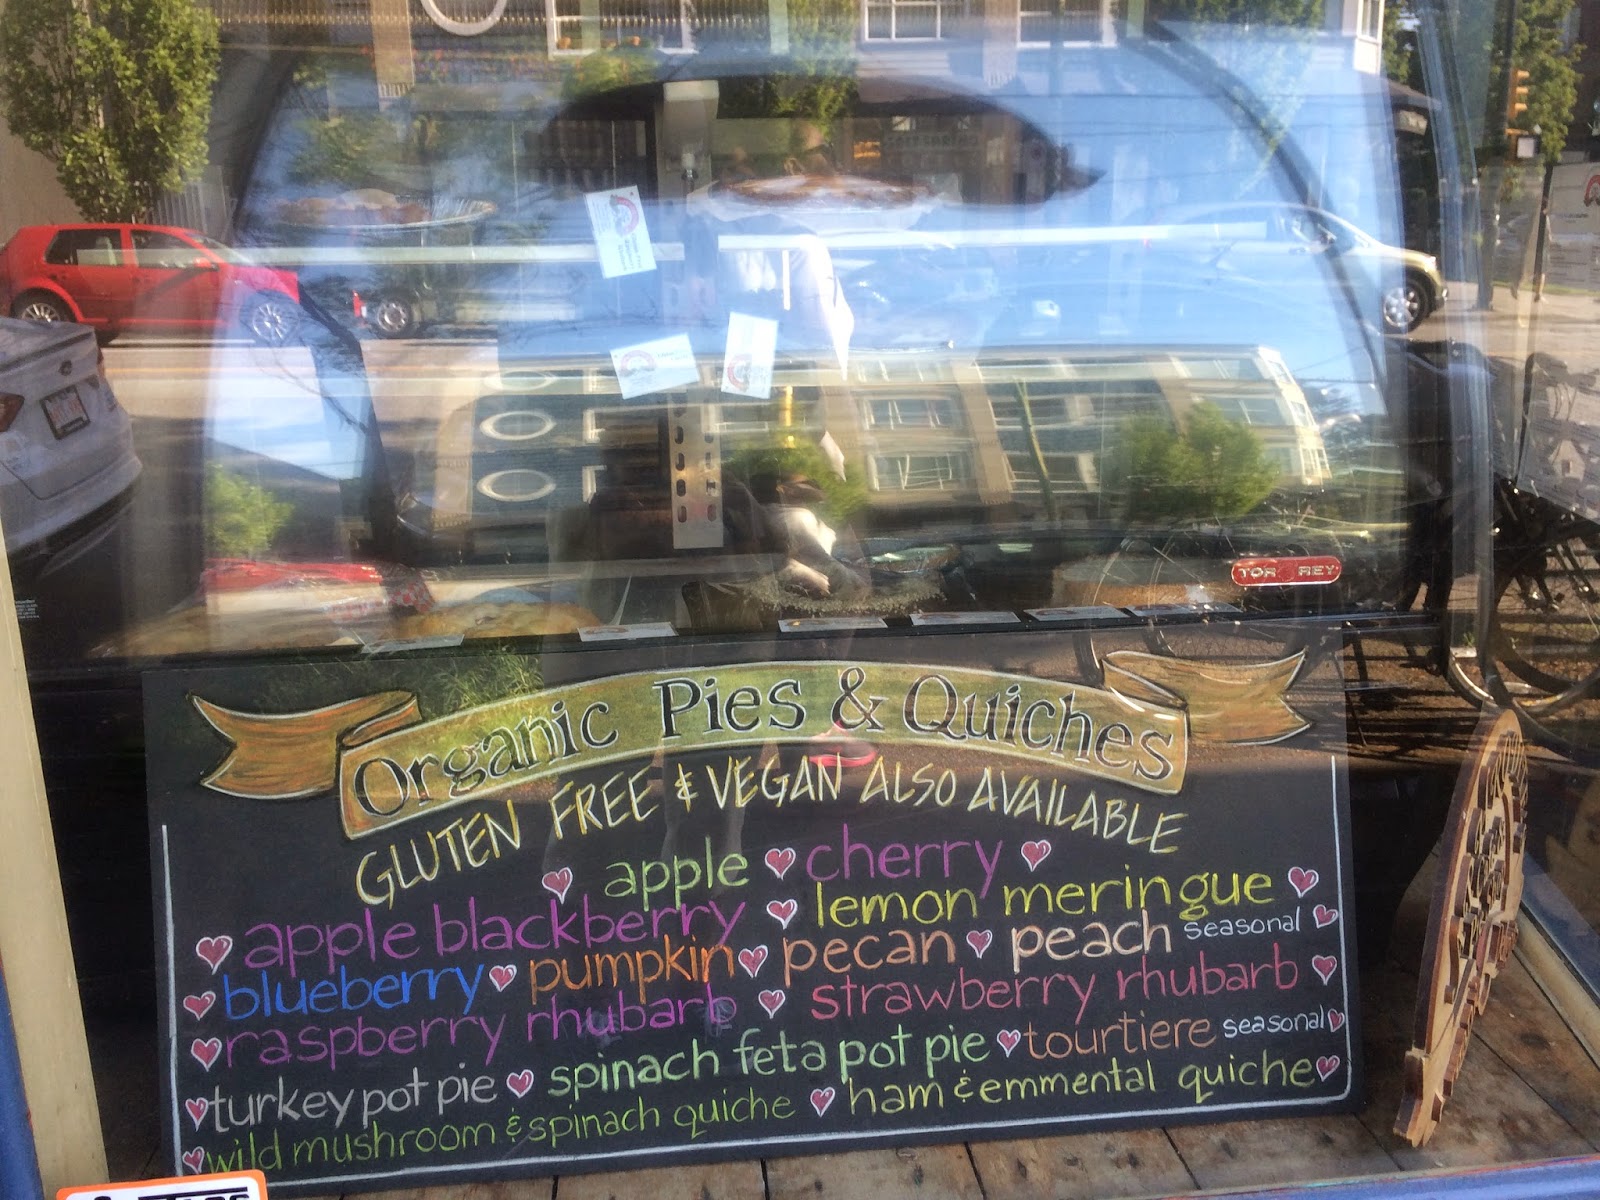 TOR REY
Organic Pies & Quiches
GLUTEN FREE & VEGAN ALSO AVAILABLE
apple cherry
apple blackberry lemon meringue
blueberry pumpkin pecan peach seasonal
raspberry rhubarb strawberry rhubarb
turkey pot pie spinach feta pot pie tourtiere seasonal
wild mushroom & spinach quiche ham & emmental quiche